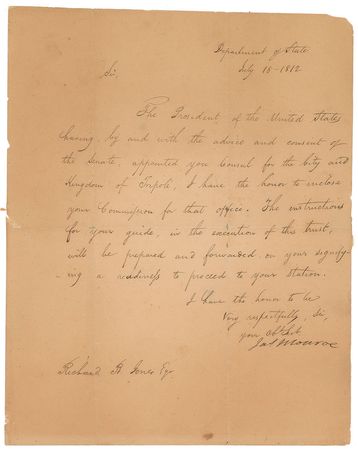 Department of State
July 18-1812
Sir,
The President of the United States
having, by and with the advice and consent of
the Senate, appointed you Consul for the City and
Kingdom of Tripoli, I have the honor to inclose
your Commission for that office. The instructions
for your guide, in the execution of this trust,
will be prepared and forwarded on your signify-
ing a readiness to proceed to your station.
I have the honor to be
Very respectfully, Sir,
your Obt Svt
Jas Monroe
Richard B Jones Esqr